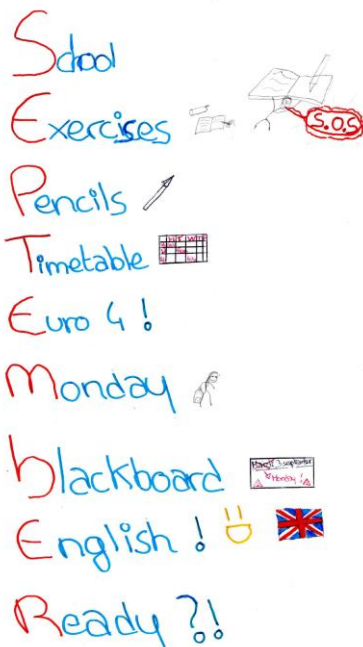 School
Exercises
S.O.S
Pencils
Timetable
Euro 4 !
Monday
blackboard
English !
Ready ?!